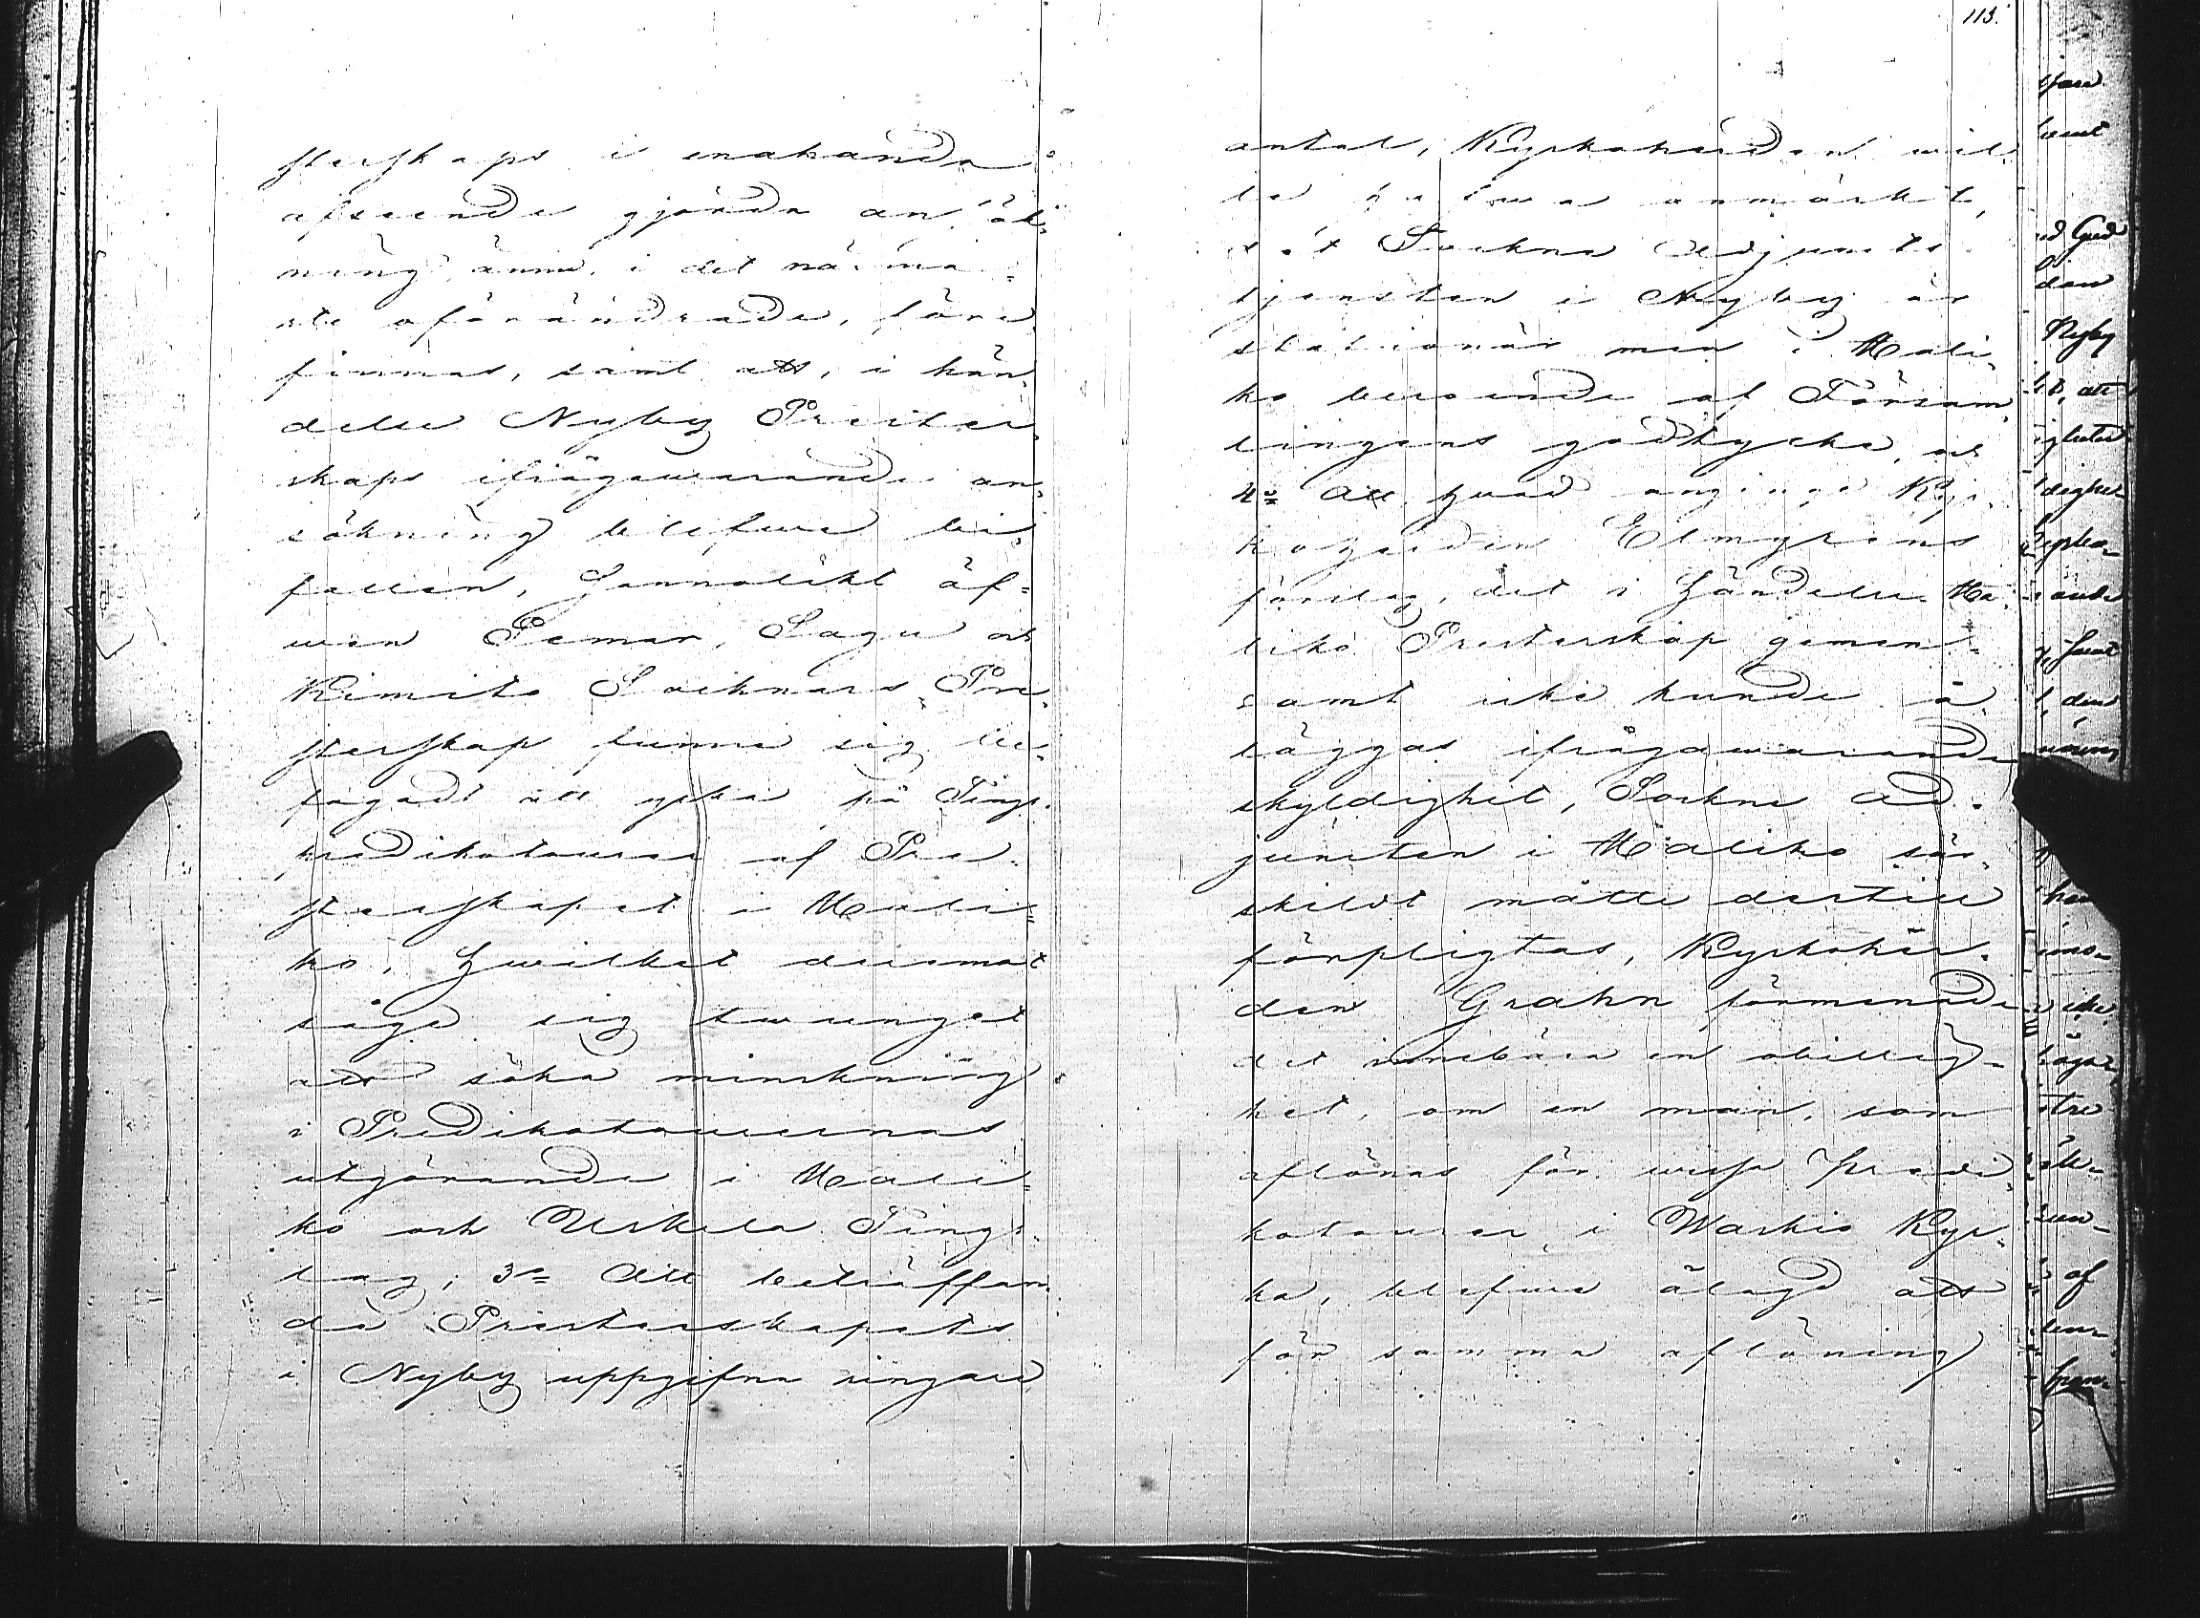 sterskaps i enahanda
afseende gjorda ansök-
ning ännu i det närma-
ste oförändrade, före
finnas, samt att, i hän,
delse Nyby Prester,
skaps ifrågawarande an,
sökning blefwe bi,
fallen, sannolikt äf=
wen Pemar, Sagu och
Kimito Socknars Pre,
sterskap funne sig be,
fogadt att yrka på Tings
predikoturer af Pre,
sterskapet i Hali=
ko, hwilket deremot
såge sig twunget
att söka minskning
i Predikoturernas
utgörande i Hali=
ko och Uskela Tings
lag; 3o Att beträffan,
de Presterskapets
i Nyby uppgifna ringare
113.
antal, Kyrkoherden wil,
le hafwa anmärkt,
att Sockne Adjunkts
tjensten i Nyby är
stationär men i Hali,
ko beroende af Försam,
lingens godtycke, och
4o Att hwad anginge Kyr,
koherden Elmgrens
förslag, det i händelse Ha,
liko Presterskap gemen,
samt icke kunde å,
läggas ifrågawarande
skyldighet, Sockne Ad,
junkten i Haliko sär,
skildt måtte dertill
förpligtas, Kyrkoher,
den Grahn förmenade
det innebära en obillig-
het, om en man, som
aflönas för wissa Predi,
koturer i Waskio Kyr,
ka, blefwe ålagd att
för samma aflöning